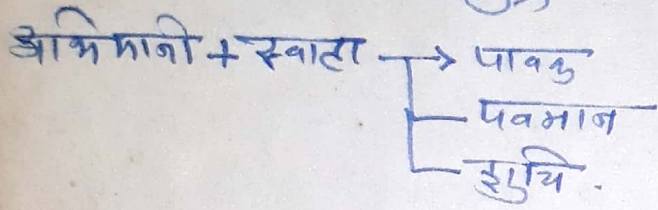 अभिमानी + स्वाहा → पावक
पवमान
शुचि .